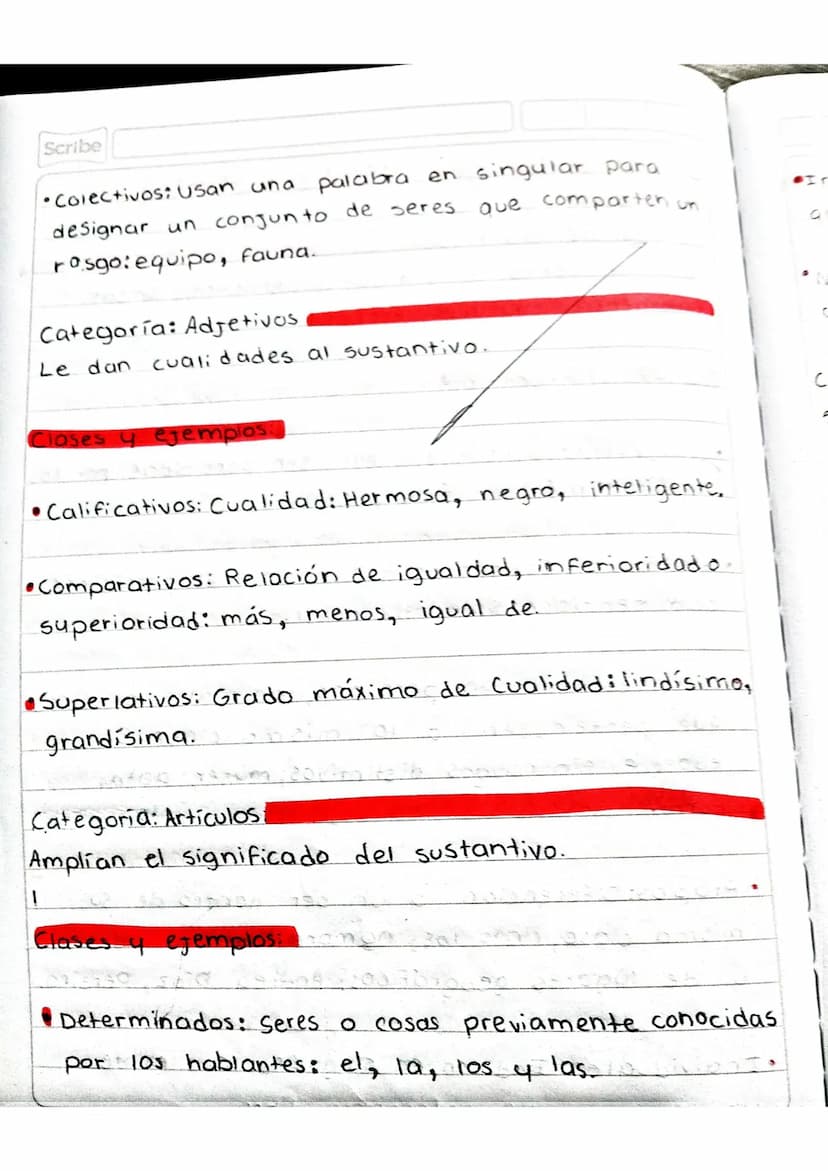 Scribe
•Colectivos: Usan una palabra en singular para
designar un conjunto de seres que comparten un
rasgo: equipo, fauna.
Categoría: Adjetivos
Le dan cualidades al sustantivo.
Clases y ejemplos:
•Calificativos: Cualidad: Hermosa, negro, inteligente.
•Comparativos: Relación de igualdad, inferioridad o
superioridad: más, menos, igual de.
•Superlativos: Grado máximo de Cualidad: lindísimo,
grandísima.
Categoría: Artículos
Amplían el significado del sustantivo.
Clases y ejemplos:
•Determinados: seres o cosas previamente conocidas
por los hablantes: el, la, los y las.